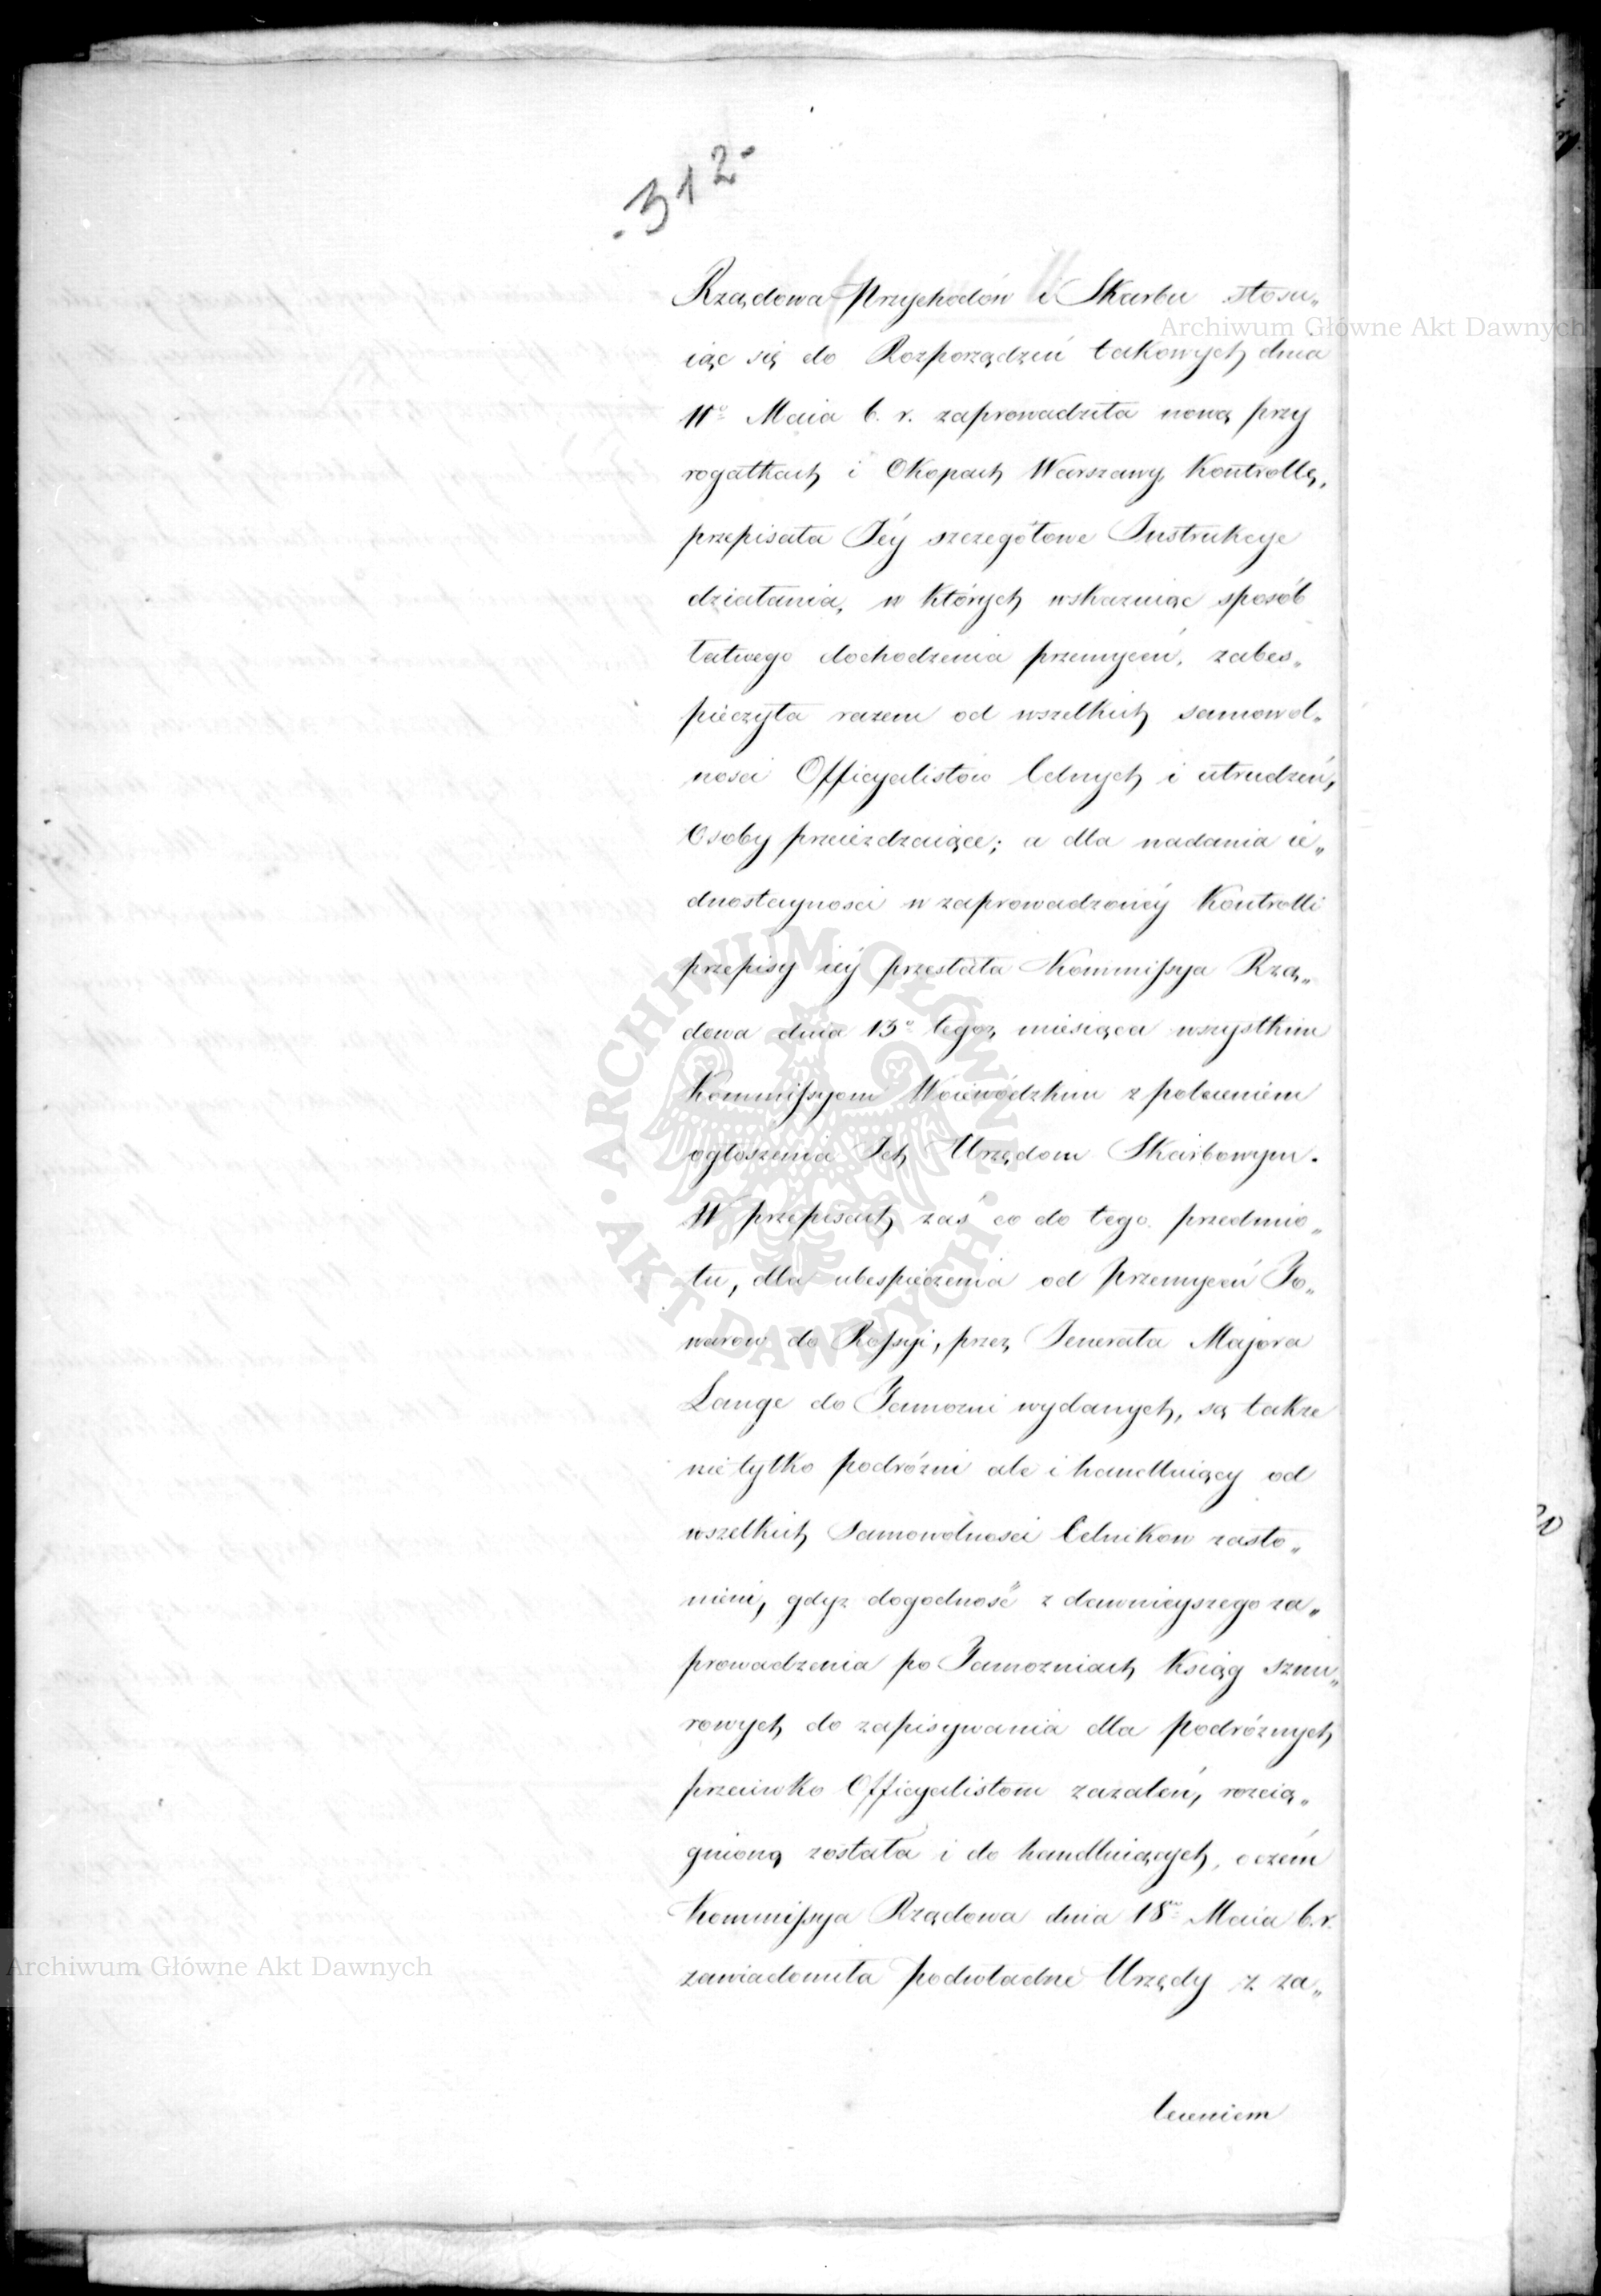 .312.
Rządowa Przychodów i Skarbu stosu„
iąc się do Rozporządzeń takowych dnia
11º Maia b. r. zaprowadziła nową przy
rogatkach i Okopach Warszawy Kontrollę,
przepisała Jéy szczegółowe Instrukcye
działania, w których wskazuiąc sposób
łatwego dochodzenia przemyceń, zabes„
pieczyła razem od wszelkich samowol„
nosci Officyalistów Celnych i utrudzeń,
Osoby przeieżdzaiące; a dla nadania ie„
dnostayności w zaprowadzonéy Kontrolli
przepisy iéy przesłała Kommissya Rzą„
dowa dnia 13º tegoż miesiąca wszystkim
Kommissyom Woiewódzkim z poleceniem
ogłoszenia Ich Urzędom Skarbowym.
W przepisach zaś co do tego przedmio„
tu, dla ubespieczenia od Przemyceń To„
warow do Rossyi, przez Jenerała Majora
Lange do Tamożni wydanych, są także
nie tylko podróżni ale i handluiący od
wszelkich Samowolnosci Celnikow zasło„
nieni, gdyż dogodność z dawnieyszego za„
prowadzenia po Tamożniach Ksiąg sznu„
rowych do zapisywania dla podróżnych
przeciwko Officyalistom zażaleń, rozcią„
gnioną została i do handluiących, o czém
Kommissya Rządowa dnia 18 Maia b. r.
zawiadomiła podwładne Urzędy z za„
leceniem
Archiwum Główne Akt Dawnych
Archiwum Główne Akt Dawnych
ARCHIWUM GŁÓWNE · AKT DAWNYCH ·